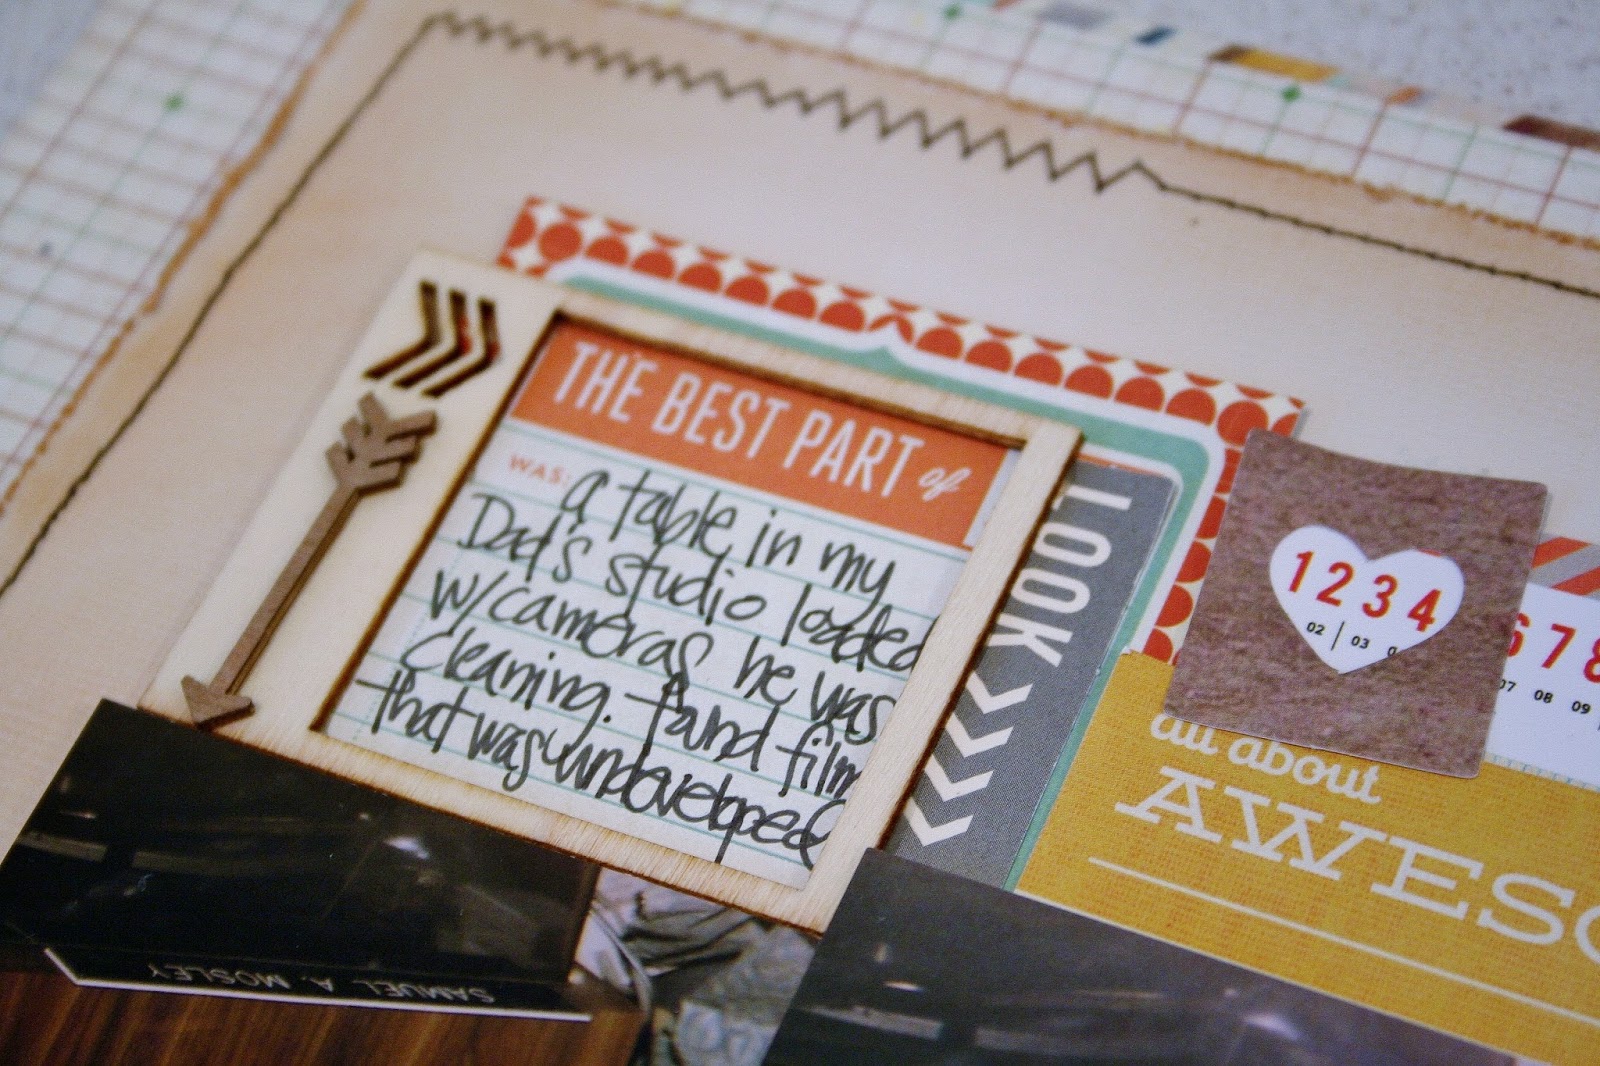 THE BEST PART of
WAS: a table in my
Dad's studio loaded
w/cameras he was
cleaning. Found film
that was undeveloped
LOOK
1234
02 03
678
07 08 09
all about
AWESO
SAMUEL A. MOSLEY